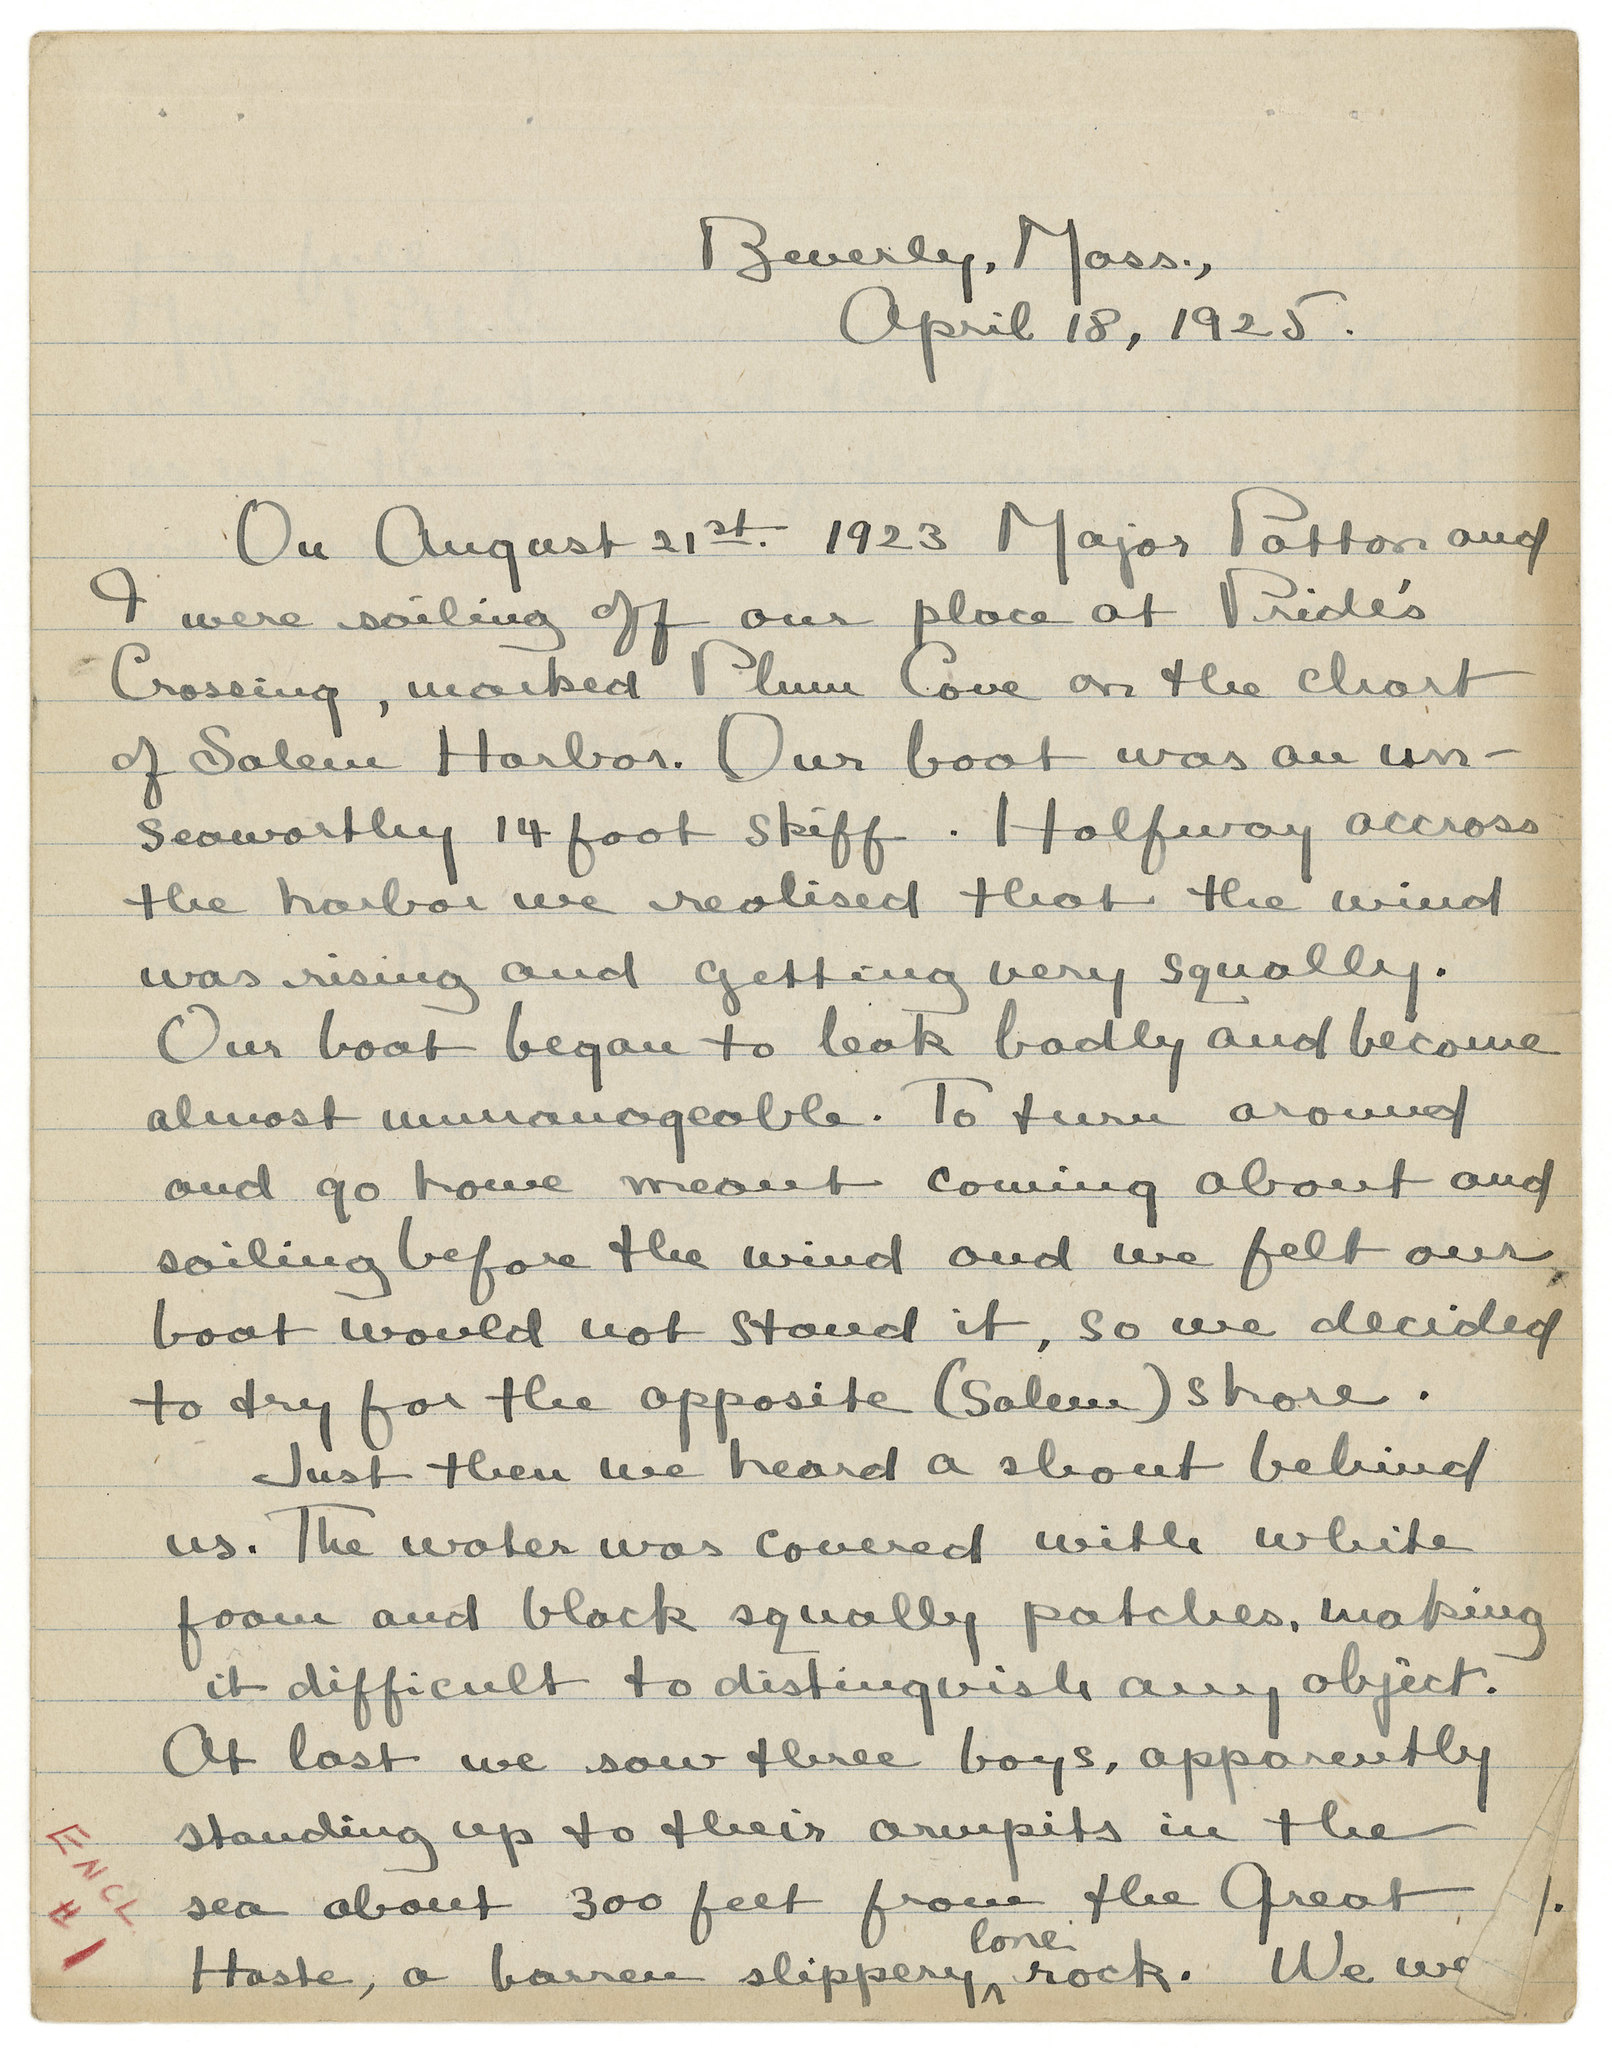 Beverly, Mass.,
April 18, 1925.
On August 21st. 1923 Major Patton and
I were sailing off our place at Pride's
Crossing, marked Plum Cove on the chart
of Salem Harbor. Our boat was an un-
seaworthy 14 foot skiff. Halfway accross
the harbor we realised that the wind
was rising and getting very squally.
Our boat began to leak badly and become
almost unmanageable. To turn around
and go home meant coming about and
sailing before the wind and we felt our
boat would not stand it, so we decided
to try for the opposite (Salem) shore.
Just then we heard a shout behind
us. The water was covered with white
foam and black squally patches, making
it difficult to distinguish any object.
At last we saw three boys, apparently
standing up to their armpits in the
sea about 300 feet from the Great
Haste, a barren slippery lone rock. We
1.
ENCL
#1